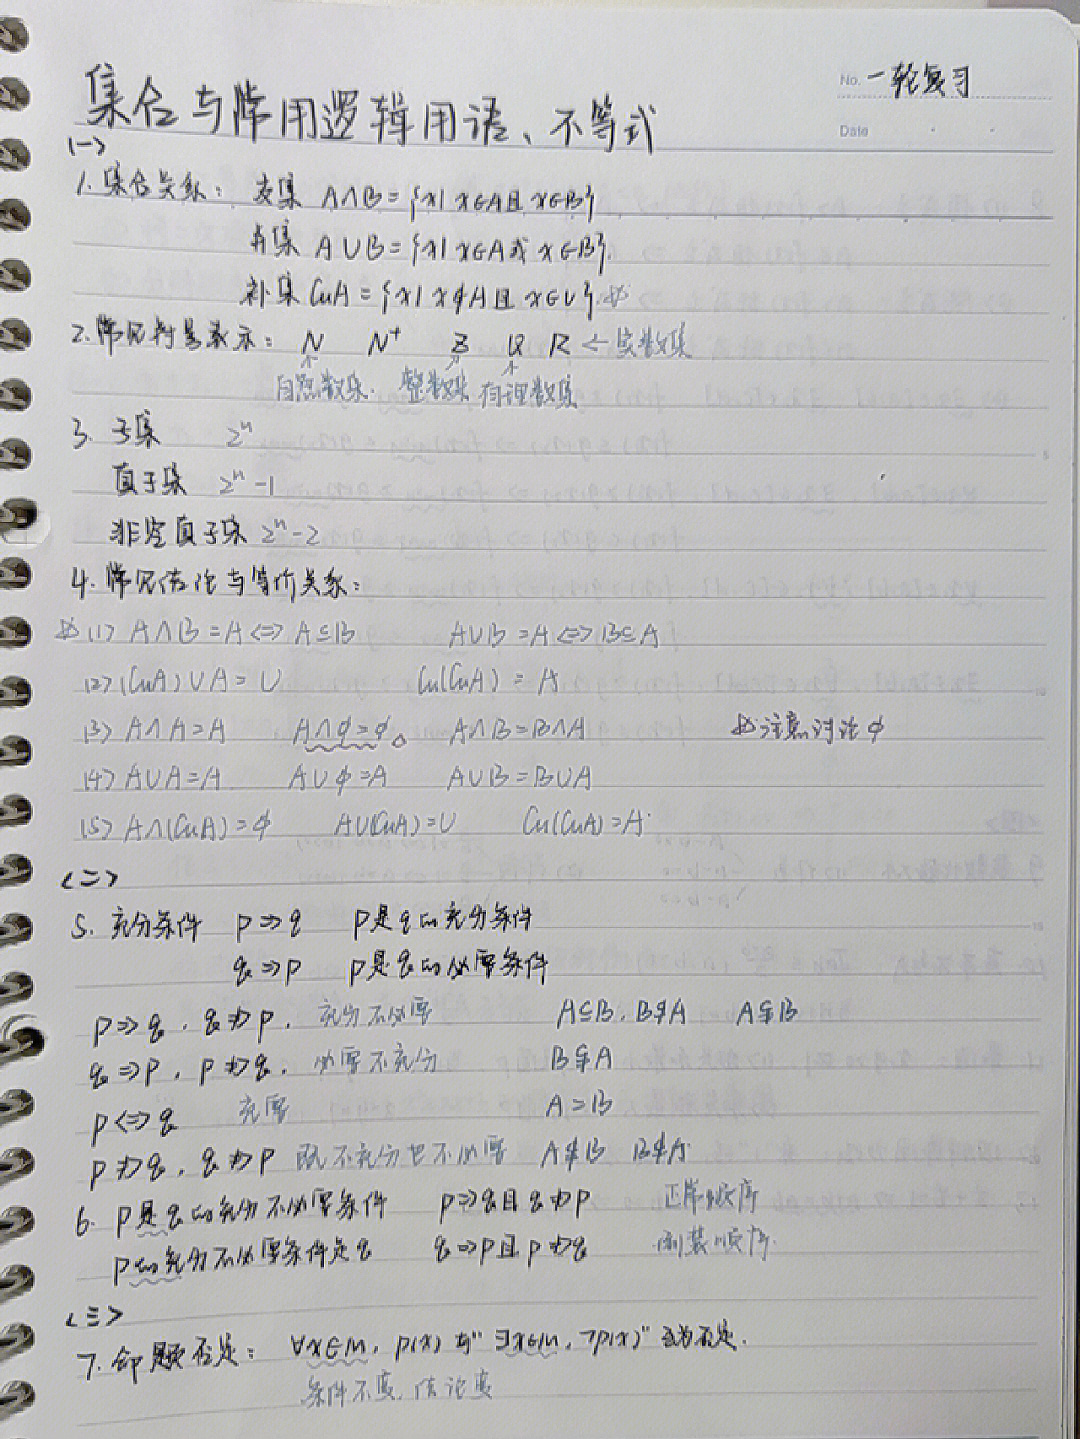 No. 一轮复习
Date
集合与常用逻辑用语、不等式
<一>
1. 集合关系： 交集 A∩B={x| x∈A且 x∈B}
并集 A∪B={x| x∈A或 x∈B}.
补集 CuA={x| x∉A且 x∈U}.
2. 常见符号表示： N N⁺ Z Q R ← 实数集
自然数集. 整数集 有理数集
3. 子集 2ⁿ
真子集 2ⁿ-1
非空真子集 2ⁿ-2
4. 常见结论与等价关系：
(1) A∩B=A⇔A⊆B A∪B=A⇔B⊆A
(2) (CuA)∪A=U Cu(CuA)=A
(3) A∩A=A A∩∅=∅. A∩B=B∩A 注意讨论∅
(4) A∪A=A A∪∅=A A∪B=B∪A
(5) A∩(CuA)=∅ A∪(CuA)=U Cu(CuA)=A.
<二>
5. 充分条件 p⇒q p是q的充分条件
q⇒p p是q的必要条件
p⇒q, q⇏p, 充分不必要 A⊆B, B⊈A A⫋B
q⇒p, p⇏q, 必要不充分 B⫋A
p⇔q 充要 A=B
p⇏q, q⇏p 既不充分也不必要 A⊈B B⊈A
6. p是q的充分不必要条件 p⇒q且q⇏p 正常顺序
p的充分不必要条件是q q⇒p且p⇏q 倒装顺序.
<三>
7. 命题否定： ∀x∈M, p(x) 与"∃x∈M, ¬p(x)" 互为否定.
条件不变, 结论变